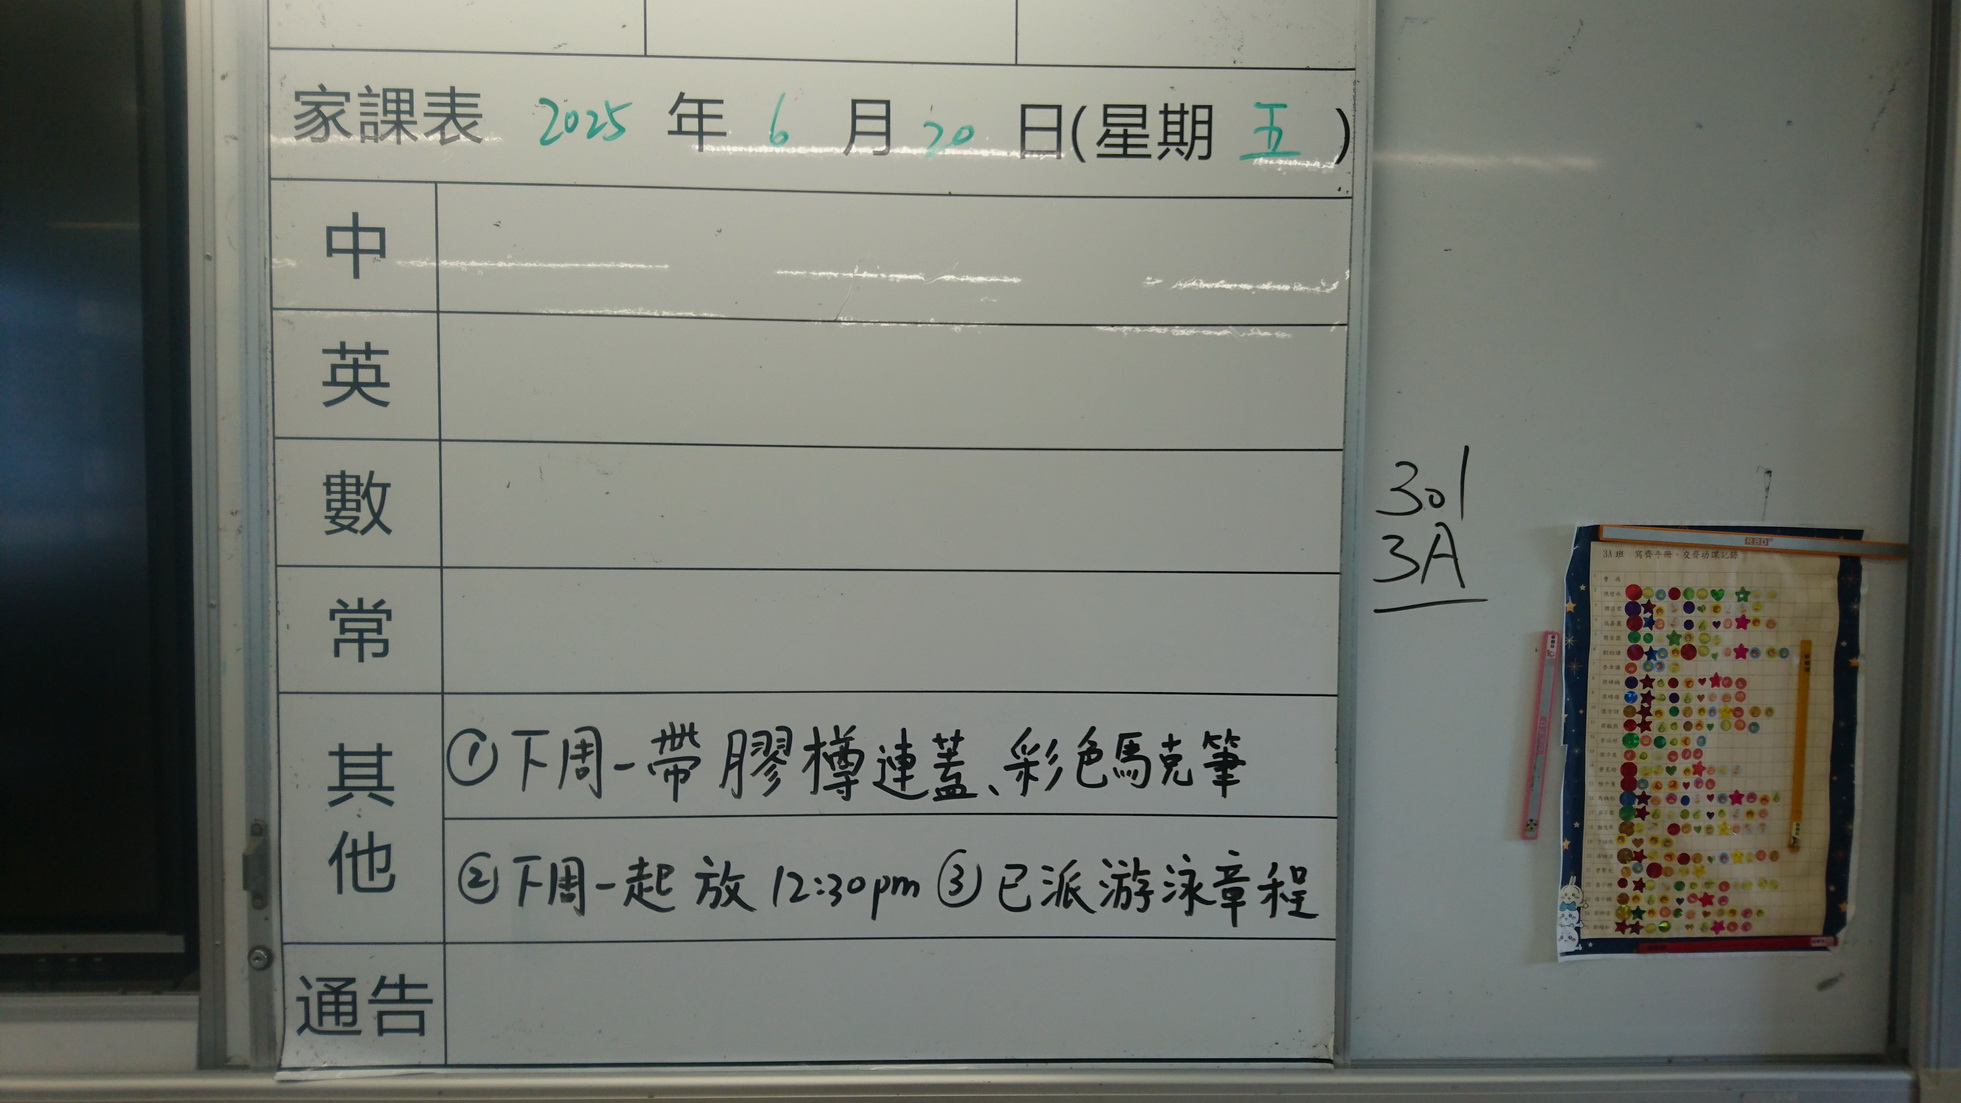 家課表 2025 年 6 月 20 日(星期 五 )
中
英
數
常
其他
①下周一帶膠樽連蓋、彩色馬克筆
②下周一起放12:30pm ③已派游泳章程
通告
301
3A
3A班 寫齊手冊、交齊功課記錄